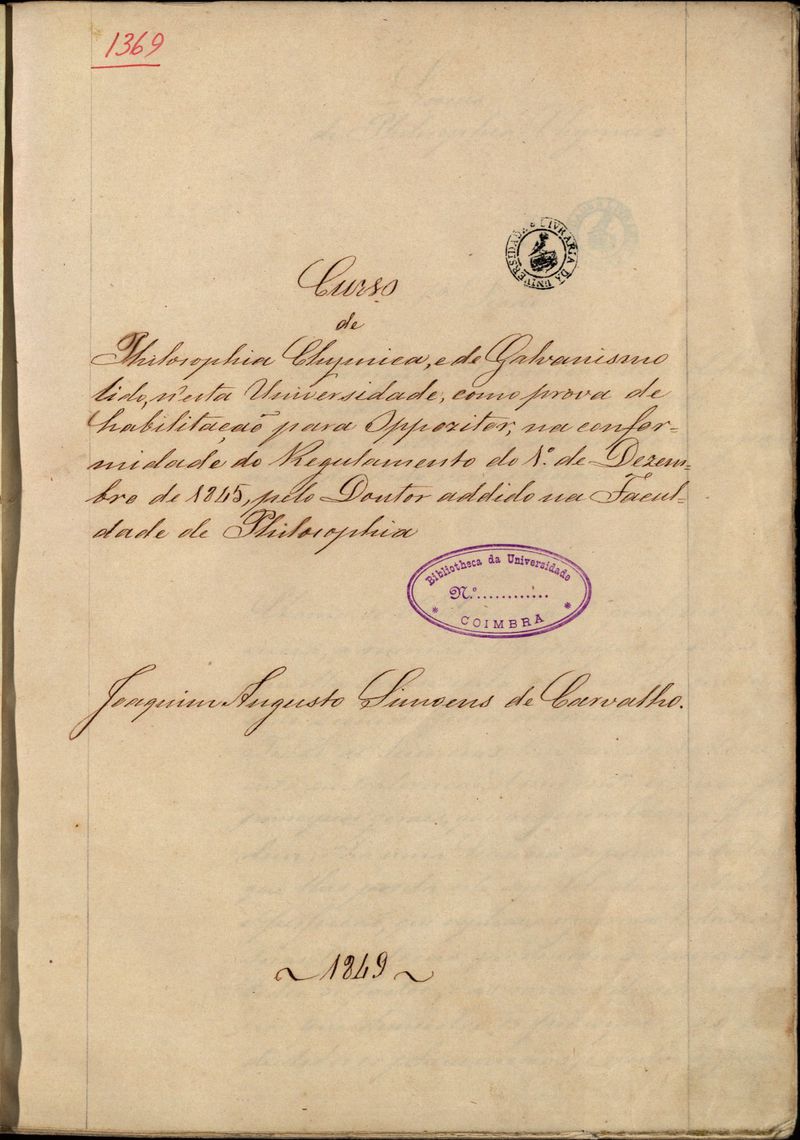 1369
LIVRARIA DA UNIVERSIDADE
Curso
de
Philosophia Chymica, e de Galvanismo
lido, n'esta Universidade, como prova de
habilitação para Oppozitor, na confor=
midade do Regulamento do 1º. de Dezem=
bro de 1845, pelo Doutor addido na Facul=
dade de Philosophia
Bibliotheca da Universidade
N.º............
* COIMBRA *
Joaquim Augusto Simoens de Carvalho.
~1849~